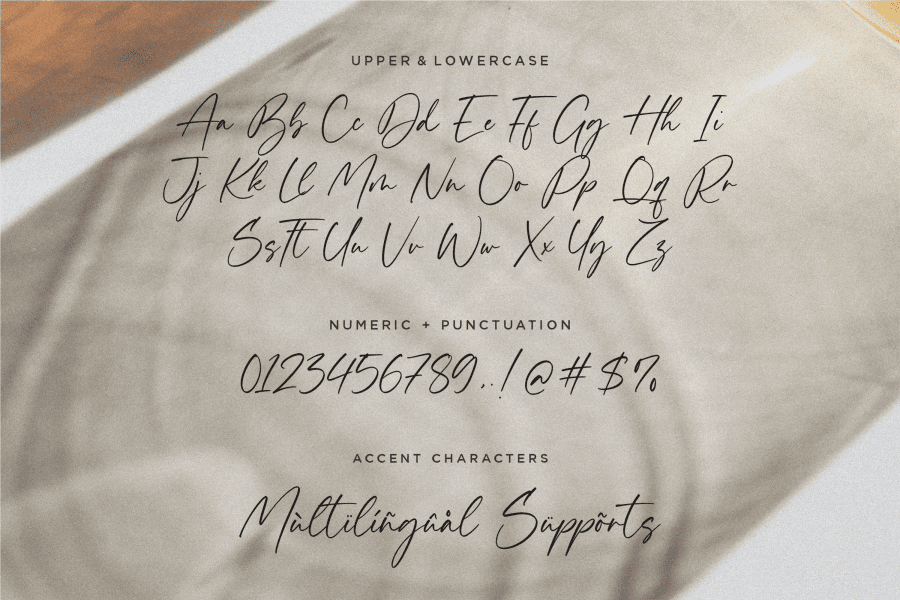 UPPER & LOWERCASE
Aa Bb Cc Dd Ee Ff Gg Hh Ii
Jj Kk Ll Mm Nn Oo Pp Qq Rr
Ss Tt Uu Vv Ww Xx Yy Zz
NUMERIC + PUNCTUATION
0123456789..!@#$%
ACCENT CHARACTERS
Mùltïlíñgûål Süppõrts